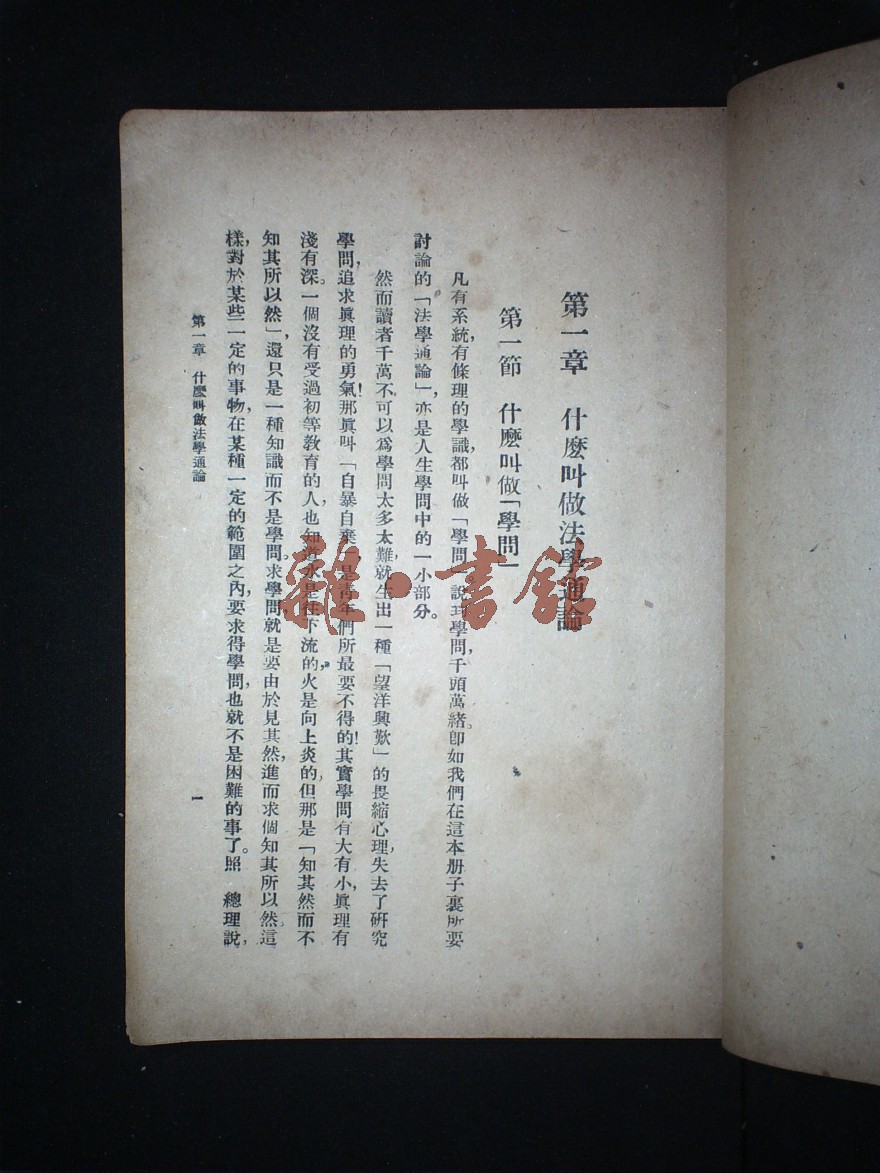 第一章　什麽叫做法學通論
第一節　什麽叫做「學問」
凡有系統，有條理的學識，都叫做「學問」說到學問，千頭萬緒。卽如我們在這本册子裏所要
討論的「法學通論」，亦是人生學問中的一小部分。
然而讀者千萬不可以爲學問太多太難，就生出一種「望洋興歎」的畏縮心理，失去了研究
學問，追求眞理的勇氣！那眞叫「自暴自棄」，是靑年們所最要不得的！其實學問有大有小，眞理有
淺有深。一個沒有受過初等教育的人，也知道水是往下流的，火是向上炎的，但那是「知其然而不
知其所以然」，還只是一種知識而不是學問。求學問，就是要由於見其然，進而求個知其所以然。這
樣，對於某些一定的事物，在某種一定的範圍之內，要求得學問，也就不是困難的事了。照　總理說，
第一章　什麽叫做法學通論
一
雜·書館